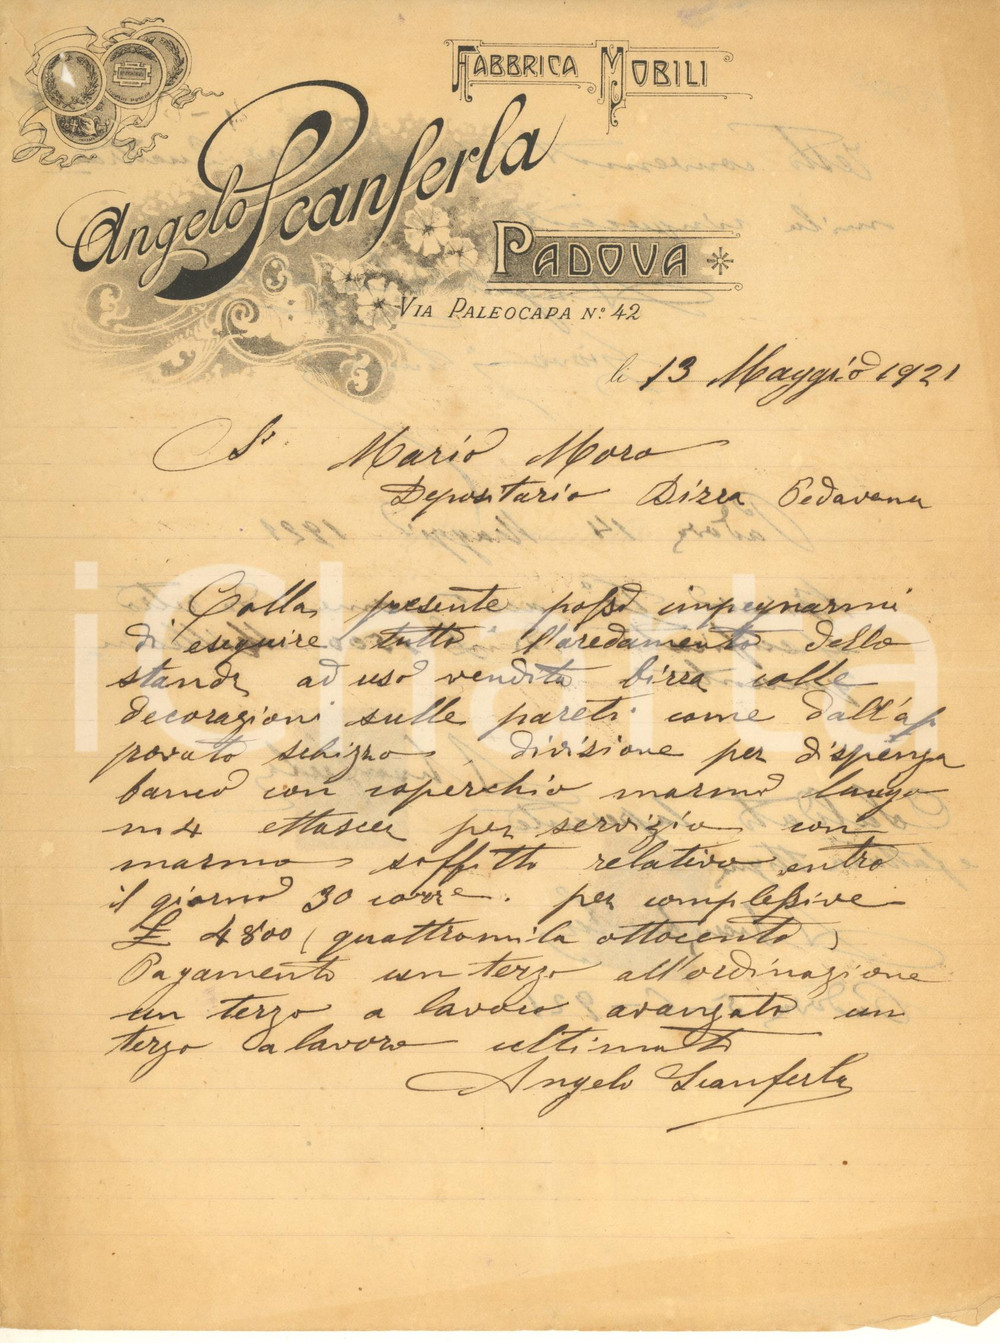 Fabbrica Mobili
Angelo Scanferla
Padova
Via Paleocapa N.º 42
li 13 Maggio 1921
Sr. Mario Moro
Depositario Birra Pedavena
Colla presente posso impegnarmi
di eseguire tutto l'aredamento dello
stand ad uso vendita birra colle
decorazioni sulle pareti come dall'ap
provato schizzo divisione per dispenza
banco con coperchio marmo lungo
m 4 per servizio con
marmo soffitto relativo entro
il giorno 30 corre. per complessive
£ 4800 (quattromila ottocento)
Pagamento un terzo all'ordinazione
un terzo a lavoro avanzato un
terzo a lavoro ultimato
Angelo Scanferla
iCharta